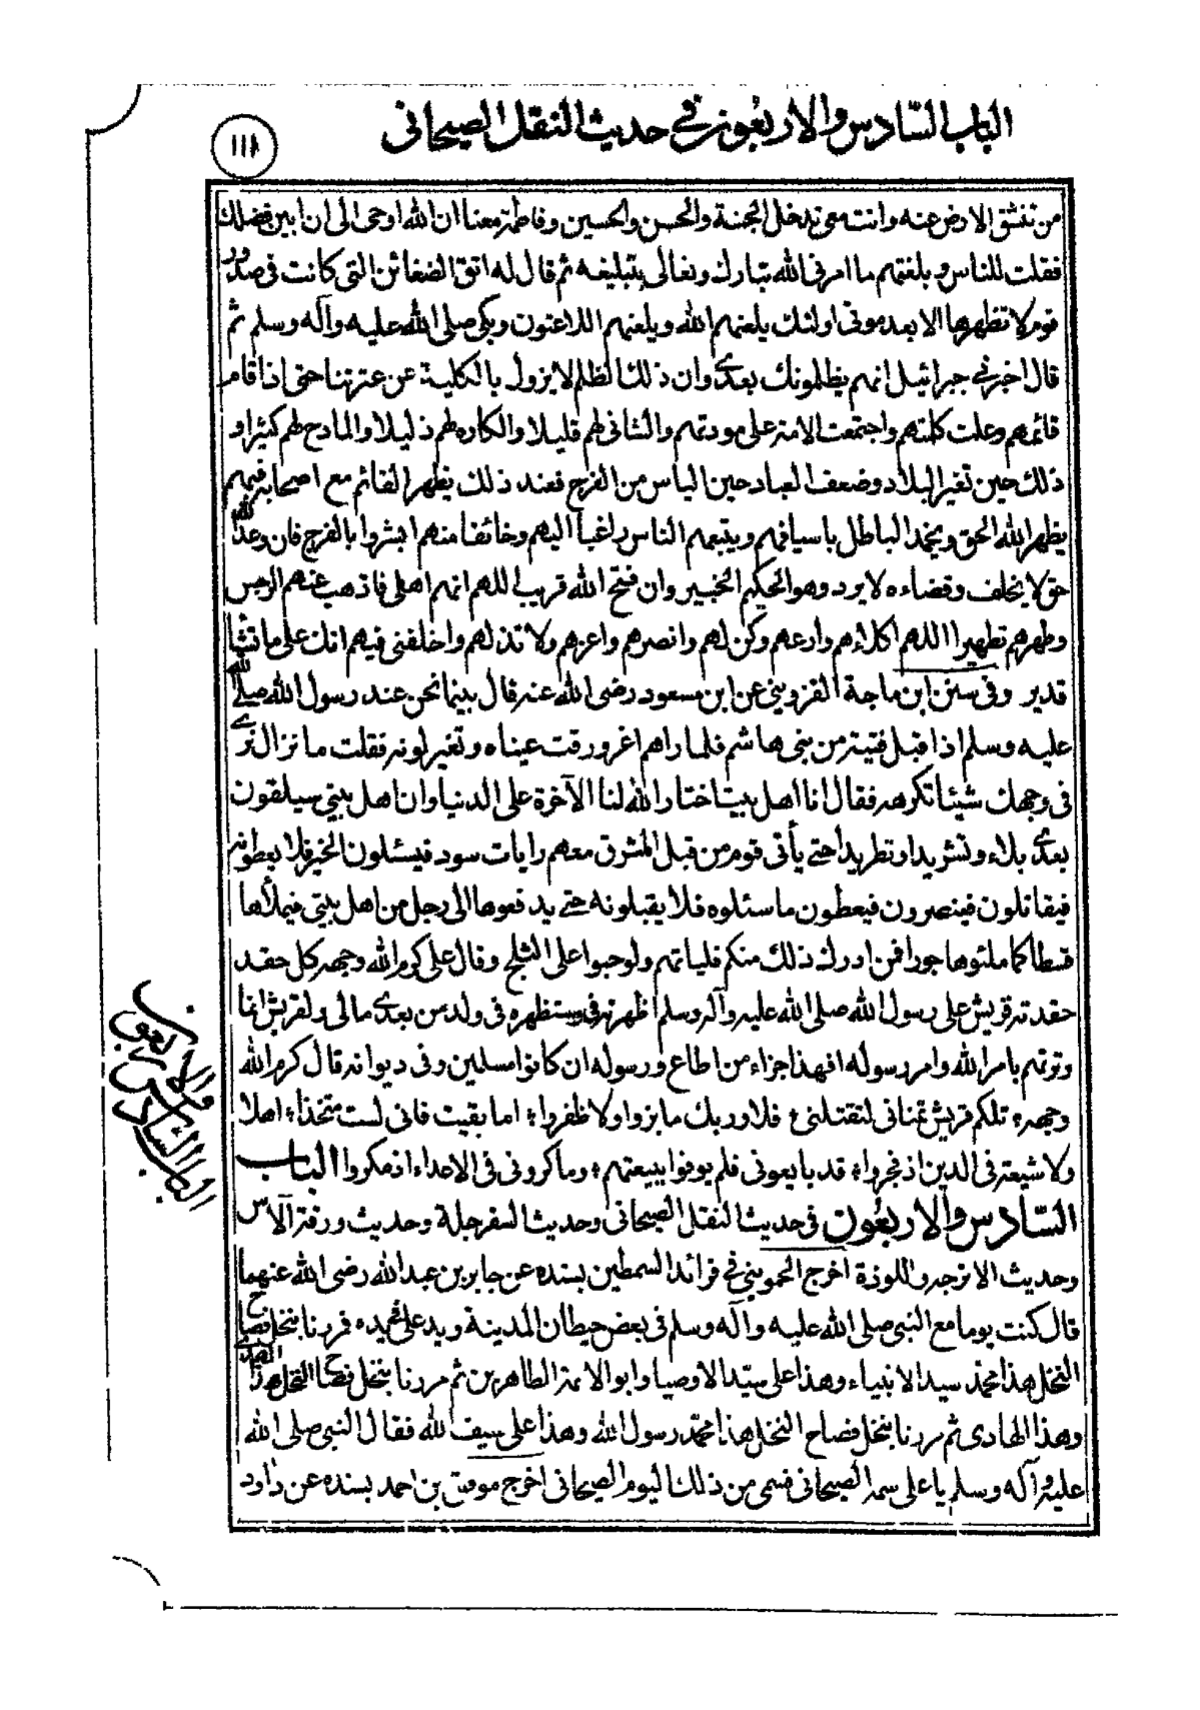 الباب السادس والاربعون في حديث النقل الصيحانى
١١١
من تنشق الارض عنه وانت معى تدخل الجنة والحسن والحسين وفاطمة معنا ان الله اوحى الى ان ابين فضلك
فقلت للناس وبلغتهم ما امرنى الله تبارك وتعالى بتبليغه ثم قال له اتق الضغائن التى كانت فى صدور
قوم لا تظهرها الا بعد موتى اولئك يلعنهم الله ويلعنهم اللاعنون وبكى صلى الله عليه وآله وسلم ثم
قال اخبرنى جبرائيل انهم يظلمونك بعدى وان ذلك الظلم لا يزول بالكلية عن عترتنا حتى اذا قام
قائمهم وعلت كلمتهم واجتمعت الامة على مودتهم والشانى لهم قليلا والكاره لهم ذليلا والمادح لهم كثيرا و
ذلك حين تغير البلاد وضعف العباد حين الياس من الفرج فعند ذلك يظهر القائم مع اصحابه فبهم
يظهر الله الحق ويخمد الباطل باسيافهم ويتبعهم الناس راغبا اليهم وخائفا منهم ابشروا بالفرج فان وعد الله
حق لا يخلف وقضاءه لا يرد وهو الحكيم الخبير وان فتح الله قريب اللهم انهم اهلى فاذهب عنهم الرجس
وطهرهم تطهيرا اللهم اكلاءهم وارعهم وكن لهم وانصرهم واعزهم ولا تذلهم واخلفنى فيهم انك على ما تشا
قدير وفى سنن ابن ماجة القزوينى عن ابن مسعود رضى الله عنه قال بينما نحن عند رسول الله صلى الله
عليه وسلم اذا قبل فتية من بنى هاشم فلما راهم اغرورقت عيناه وتغير لونه فقلت ما نزال نرى
فى وجهك شيئا تكرهه فقال انا اهل بيت اختار الله لنا الآخرة على الدنيا وان اهل بيتى سيلقون
بعدى بلاء وتشريدا وتطريدا حتى يأتى قوم من قبل المشرق معهم رايات سود فيسئلون الخير فلا يعطونه
فيقاتلون فينصرون فيعطون ما سئلوه فلا يقبلونه حتى يدفعوها الى رجل من اهل بيتى فيملأها
قسطا كما ملئوها جورا فمن ادرك ذلك منكم فلياتهم ولو حبوا على الثلج وقال على كرم الله وجهه كل حقد
حقدته قريش على رسول الله صلى الله عليه وآله وسلم اظهرته فى وستظهره فى ولدى من بعدى مالى ولقريش انما
وترتهم بامر الله وامر رسوله افهذا جزاء من اطاع ورسوله ان كانوا مسلمين وفى ديوانه قال كرم الله
وجهه تلكم قريش تمنانى لتقتلنى ؛ فلا وربك ما بزوا ولا ظفروا ؛ اما بقيت فانى لست متخذا ؛ اهلا
ولا شيعة فى الدين اذ فجروا ؛ قد بايعونى فلم يوفوا ببيعتهم ؛ وماكرونى فى الاعداء اذ مكروا الباب
السادس والاربعون فى حديث النقل الصيحانى وحديث السفرجلة وحديث ورقة الآس
وحديث الاترجه واللوزة اخرج الحموينى فى فرائد السمطين بسنده عن جابر بن عبد الله رضى الله عنهما
قال كنت يوما مع النبى صلى الله عليه وآله وسلم فى بعض حيطان المدينة ويد على فى يده فمررنا بنخل فصاح
النخل هذا محمد سيد الانبياء وهذا على سيد الاوصيا وابو الائمة الطاهرين ثم مررنا بنخل فصاح النخل هذا المهدى
وهذا الهادى ثم مررنا بنخل فصاح النخل هذا محمد رسول الله وهذا على سيف الله فقال النبى صلى الله
عليه وآله وسلم يا على سمه الصيحانى فسمى من ذلك اليوم الصيحانى اخرج موفق بن احمد بسنده عن داود
الباب السادس
والاربعون